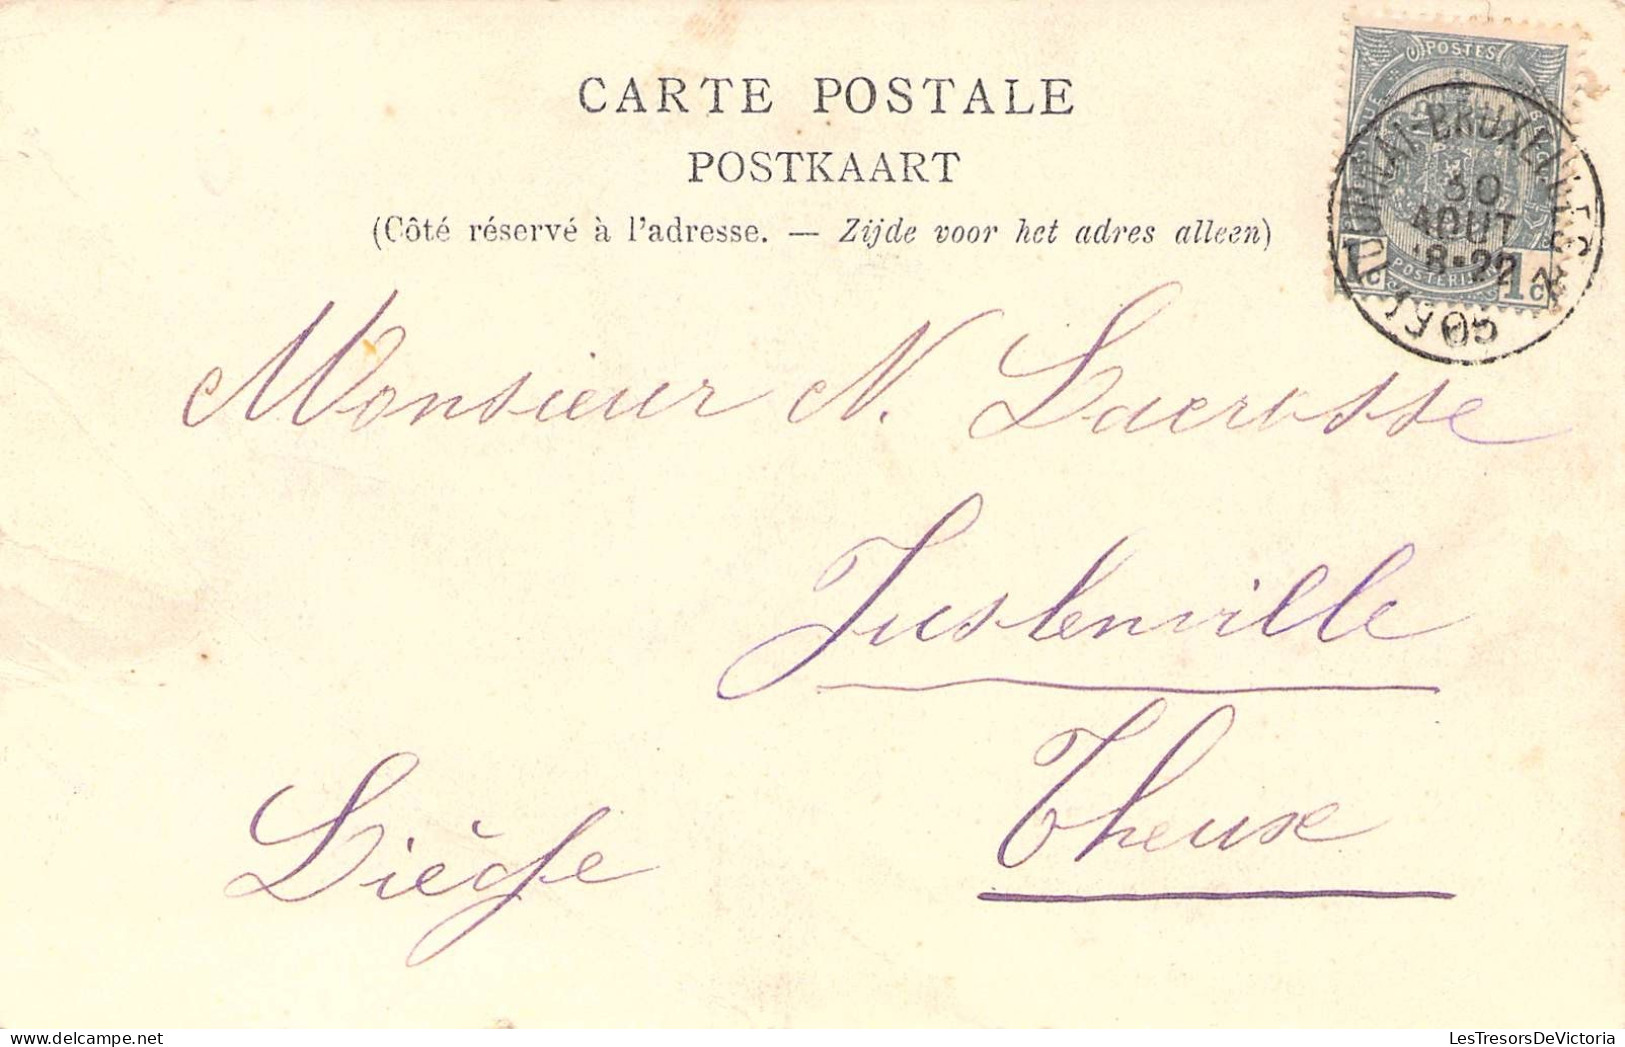 CARTE POSTALE
POSTKAART
(Côté réservé à l'adresse. — Zijde voor het adres alleen)
POSTES
1c 1c
30
AOUT
8-22
05
Monsieur N. Lacrosse
Juslenville
Theux
Liège
LesTresorsDeVictoria